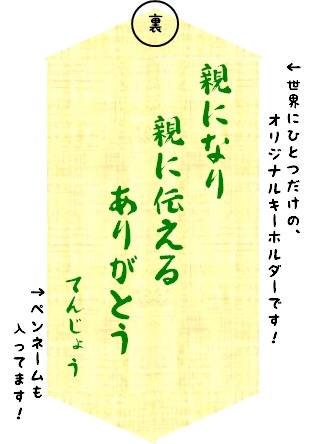 裏
←世界にひとつだけの、
オリジナルキーホルダーです!
親になり
親に伝える
ありがとう
てんじょう
←ペンネームも
入ってます!